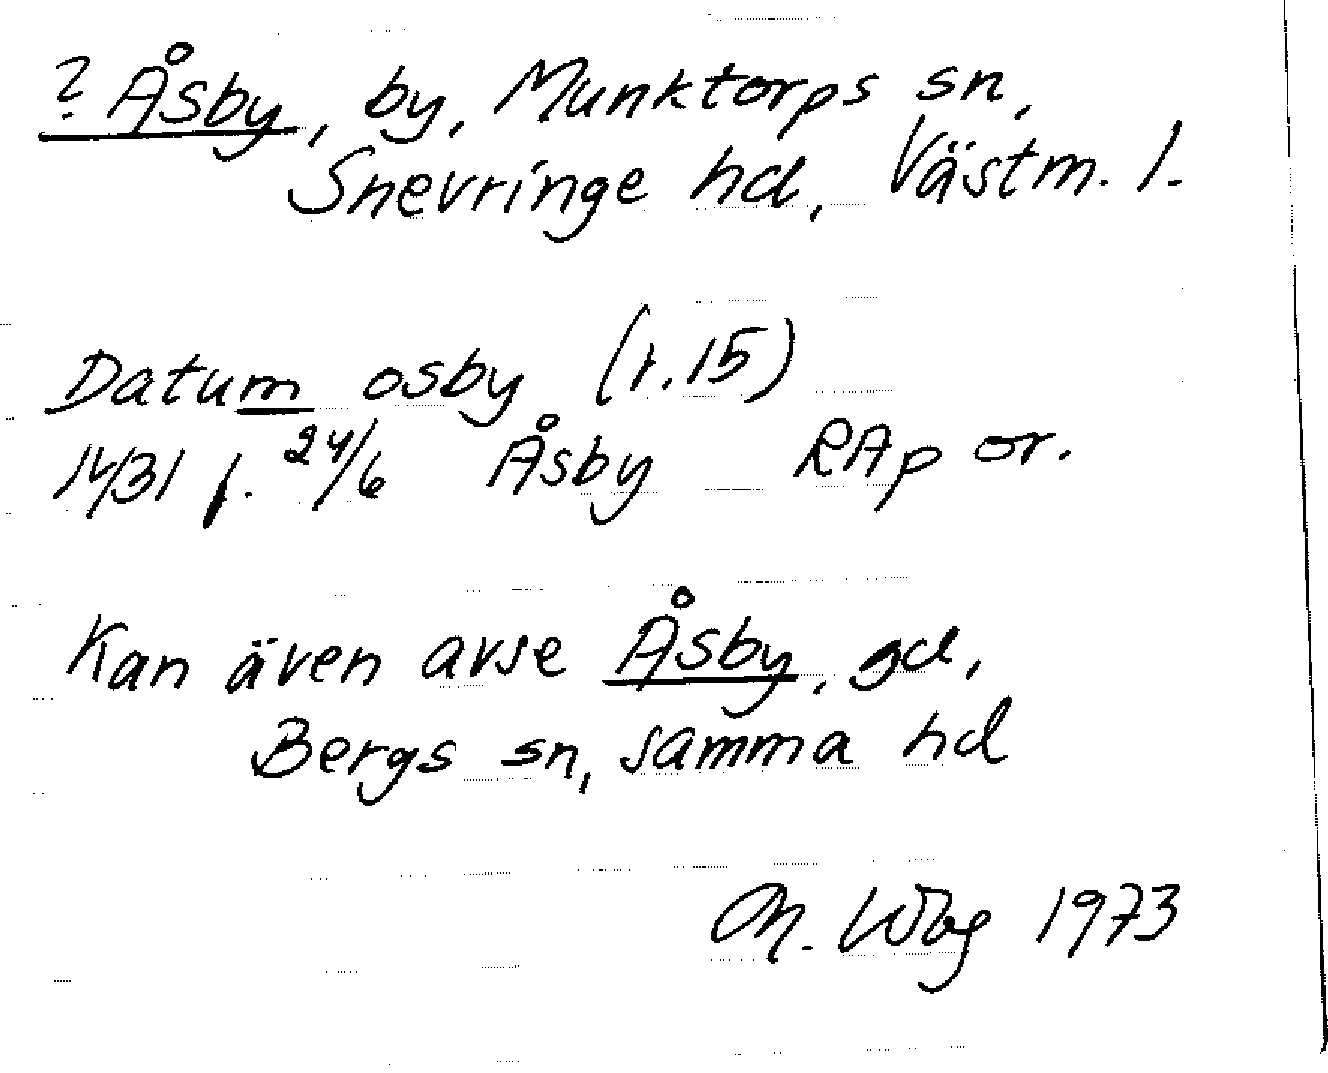 ? Åsby, by, Munktorps sn,
Snevringe hd, Västm. l.
Datum osby (r. 15)
1431 f. 24/6 Åsby RAp or.
Kan även avse Åsby, gd,
Bergs sn, samma hd
M. Wbg 1973